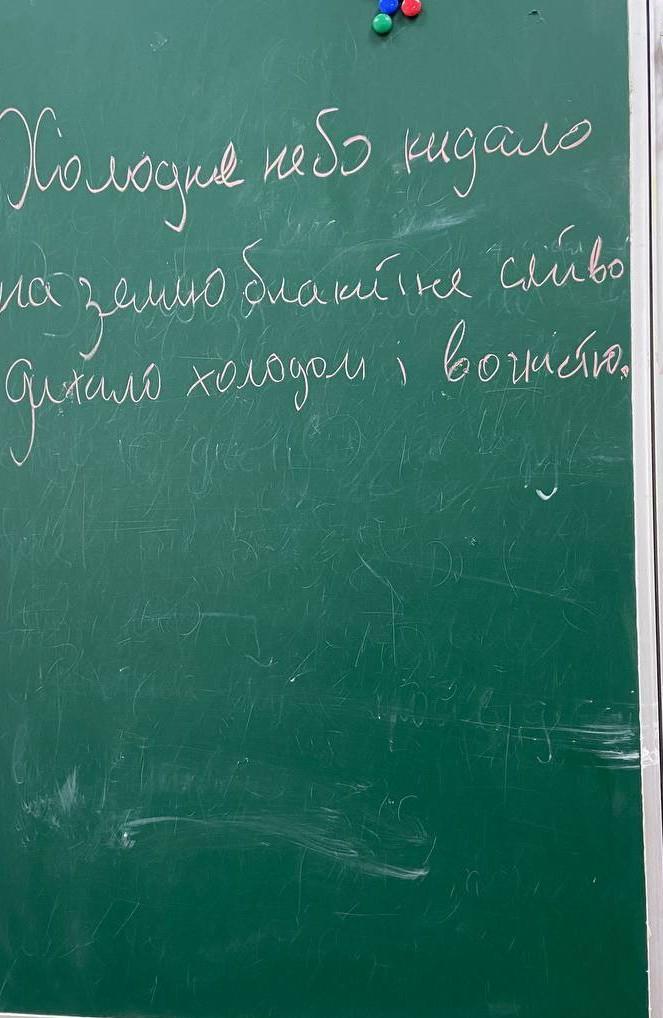 Холодне небо кидало
на землю блакитне сяйво
дихало холодом і вогкістю.